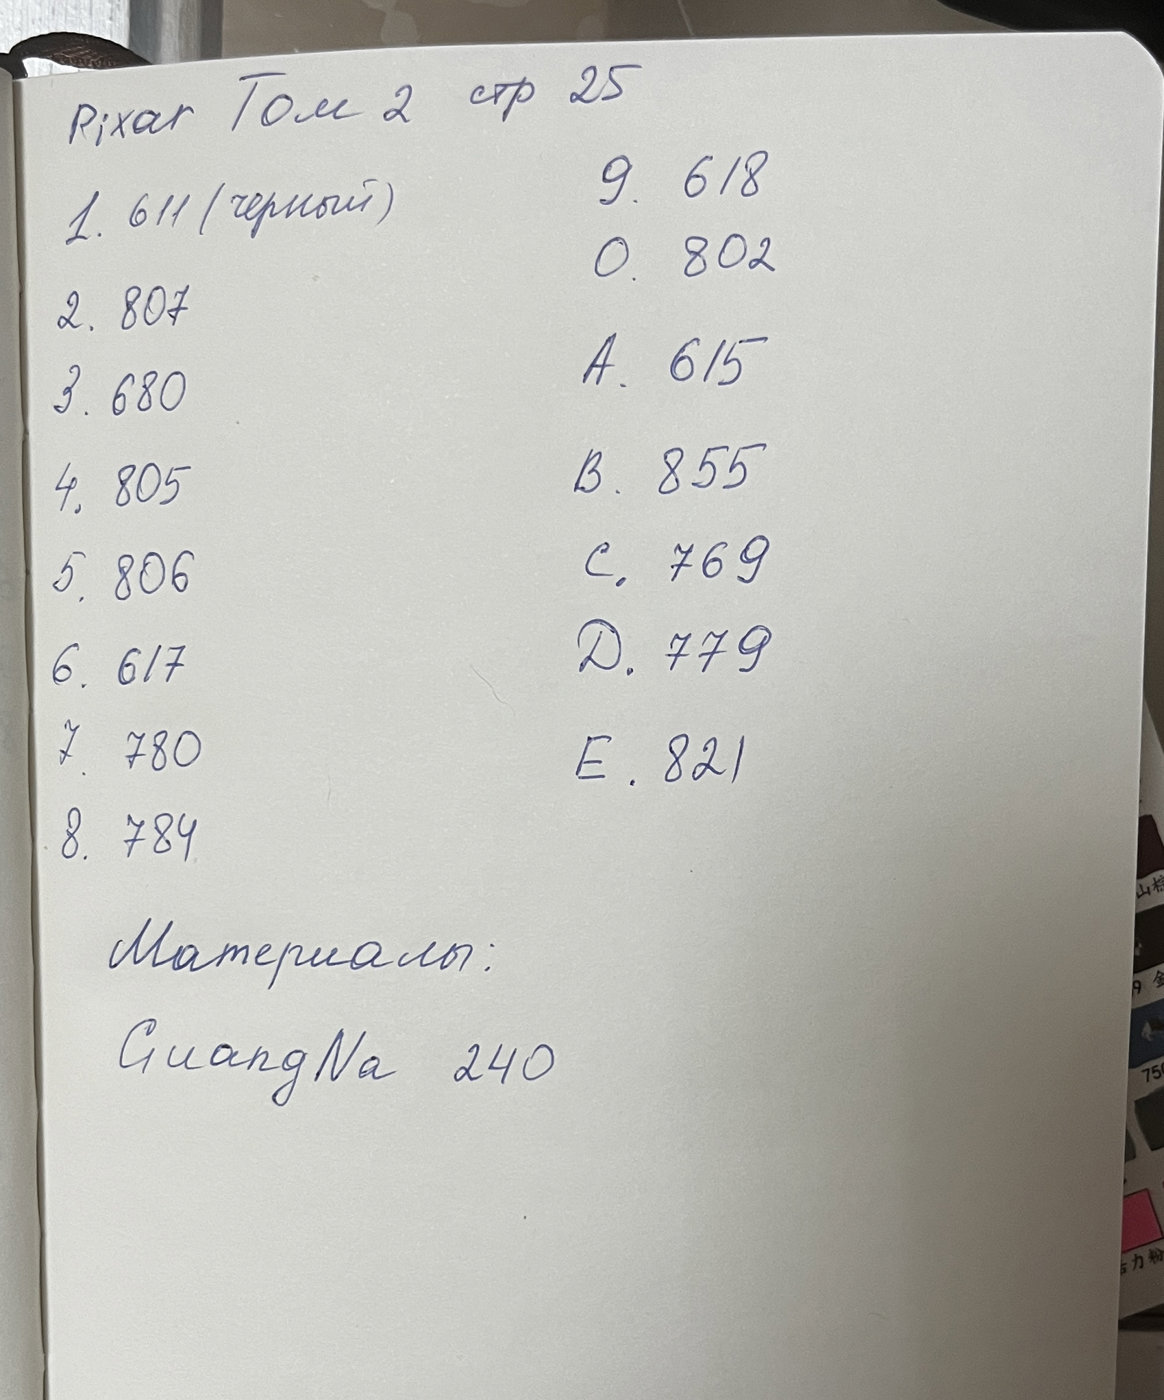 Pixar Том 2 стр 25
1. 611 (черный)
2. 807
3. 680
4. 805
5. 806
6. 617
7. 780
8. 784
9. 618
0. 802
A. 615
B. 855
C. 769
D. 779
E. 821
Материалы:
GuangNa 240
山棕
9 金
750
力粉